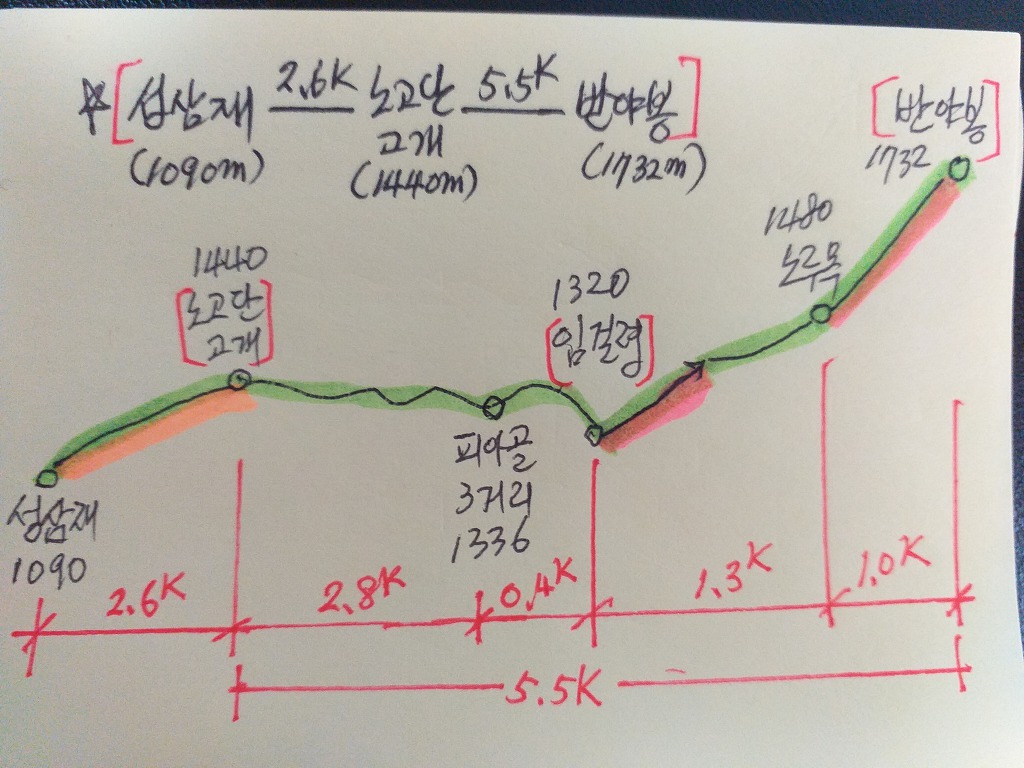 ☆[성삼재 2.6K 노고단 5.5K 반야봉]
고개
(1090m) (1440m) (1732m)
[반야봉]
1732
1480
노루목
1440
[노고단
고개]
1320
[임걸령]
피아골
3거리
1336
성삼재
1090
2.6K 2.8K 0.4K 1.3K 1.0K
5.5K